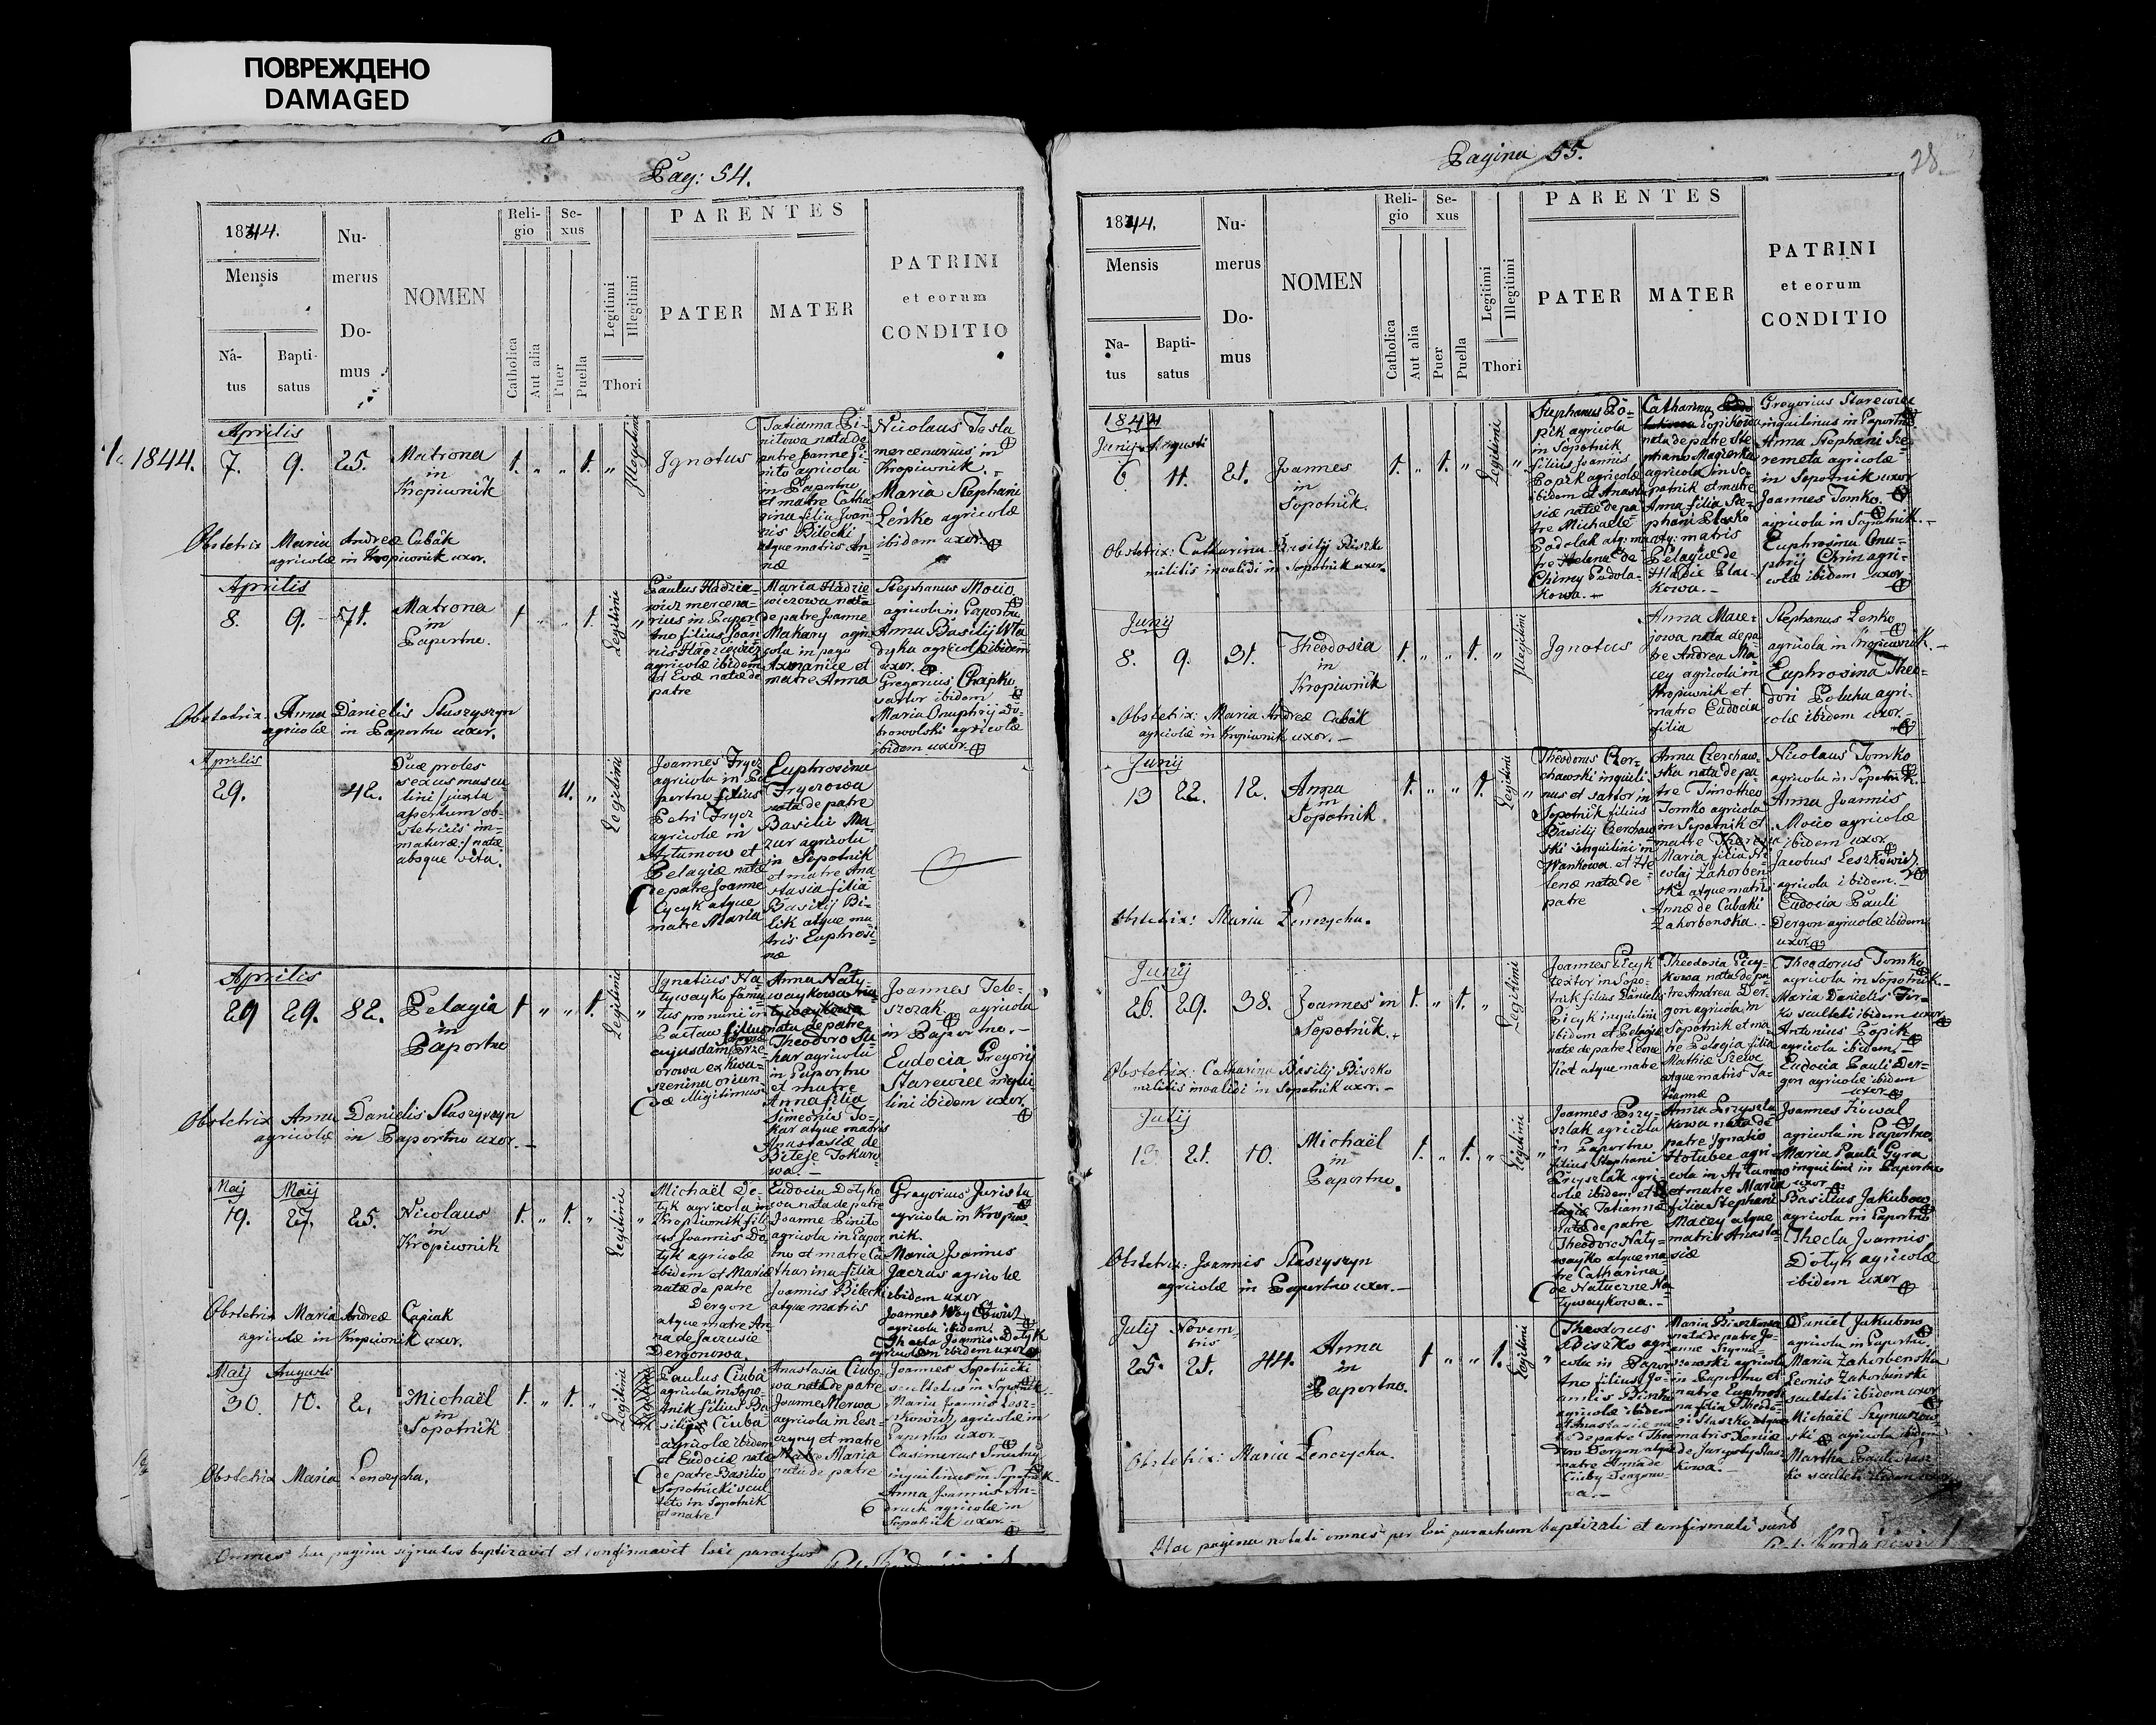 ПОВРЕЖДЕНО
DAMAGED
Pag: 54.
1844.
Mensis
Na-
tus
Bapti-
satus
Nu-
merus
Do-
mus
NOMEN
Reli-
gio
Catholica
Aut alia
Se-
xus
Puer
Puella
Legitimi
Illegitimi
Thori
PARENTES
PATER
MATER
PATRINI
et eorum
CONDITIO
1844.
Aprilis
7. 9. 25.
Matrona
in
Kropiwnik
1. " " 1.
Illegitimi
Ignotus
Tatianna Pi-
nitowa nata de
patre Joanne Pi-
nito agricola
in Paportno
et matre Catha
rina filia Joan-
nis Bilecki
atque matris An-
næ
Nicolaus Tesla
mercenarius in
Kropiwnik.
Maria Stephani
Lenko agricolæ
ibidem uxor.
Obstetrix Maria Andreæ Cabak
agricolæ in Kropiwnik uxor.
Aprilis
8. 9. 71.
Matrona
in
Paportno.
1 " " 1.
Legitimi "
Paulus Hadzie-
wicz mercena-
rius in Papor-
tno filius Joan
nis Hadziewicz
agricolæ ibidem
et Evæ natæ de
patre
Maria Hadzie
wiczowa nata
de patre Joanne
Makary agri-
cola in pago
Axmanice et
matre Anna
Stephanus Mocio
agricola in Paportno
Anna Basilij Wła
dyka agricolæ ibidem
uxor.
Gregorius Chapko
sartor ibidem
Maria Onuphrij Do-
browolski agricolæ
ibidem uxor.
Obstetrix Anna Danielis Staszyszyn
agricolæ in Paportno uxor.
Aprilis
29. 42.
Duæ proles
sexus mascu
lini /:juxta
assertum ob-
stetricis im-
maturæ:/ natæ
absque vita.
Legitimi
Joannes Frycz
agricola in Pa
portno filius
Petri Frycz
agricolæ in
Artumow et
Pelagiæ natæ
de patre Joanne
Cycyk atque
matre Maria
Euphrosina
Fryczowa
nata de patre
Basilio Ma-
zur agricola
in Sopotnik
et matre Ana-
stasia filia
Basilij Bi-
lik atque ma
tris Euphrosi-
næ
Aprilis
29 29. 82.
Pelagia
in
Paportno
1 " " 1.
Legitimi "
Ignatius Na-
tywayko famu
tus pronunc in
cujusdam
orowa ex Kwa-
szenina oriun
dæ illegitimus
Anna Naty-
waykowa
nata de patre
Theodoro Su-
har agricola
in Paportno
et matre
Anna filia
Simeonis To-
kar atque matris
Anastasiæ de
Biteje Tokaro
wa
Joannes Tele-
szczak agricola
in Paportno.
Eudocia Gregorij
Starewiec inqui
lini ibidem uxor.
Obstetrix Anna Danielis Staszyszyn
agricolæ in Paportno uxor.
Maij Maij
19. 27. 25.
Nicolaus
in
Kropiwnik
1. " 1. "
Legitimi "
Michaël Do-
tyk agricola in
Kropiwnik fili
us Joannis Do
tyk agricolæ
ibidem et Mariæ
natæ de patre
Dergon
atque matre An-
na de Jaczusie
Dergonowa.
Eudocia Dotyko
wa nata de patre
Joanne Pinito
agricola in Papor
tno et matre Ca
tharina filia
Joannis Bilecki
atque matris
Gregorius Jurista
agricola in Kropiw-
nik.
Maria Joannis
Jaczus agricolæ
ibidem uxor
agricola ibidem.
Thecla Joannis Dotyk
agricolæ ibidem uxor
Obstetrix Maria Andreæ Capiak
agricolæ in Kropiwnik uxor.
Maij Augusti
30. 10. 2.
Michaël
in
Sopotnik
1. " 1. "
Legitimi
Paulus Ciuba
agricola in Sopo-
tnik filius Ba
silij Ciuba
agricolæ ibidem
et Eudociæ natæ
de patre Basilio
Sopotnicki scul
teto in Sopotnik
et matre
Anastasia Ciubo-
wa nata de patre
Joanne Merwa
agricola in Lesz-
czyny et matre
Maria
nata de patre
Joannes Sopotnicki
scultetus in Sopotnik.
Maria Joannis Lesz-
kowicz agricolæ in
Paportno uxor.
Casimirus Smutny
inquilinus in Sopotnik
Anna Joannis An-
druch agricolæ in
Sopotnik uxor.
Obstetrix Maria Lenczycha.
Omnes hac pagina signatos baptizavit et confirmavit loci parochus
Pagina 55.
28.
1844.
Mensis
Na-
tus
Bapti-
satus
Nu-
merus
Do-
mus
NOMEN
Reli-
gio
Catholica
Aut alia
Se-
xus
Puer
Puella
Legitimi
Illegitimi
Thori
PARENTES
PATER
MATER
PATRINI
et eorum
CONDITIO
1844
Junij Augusti
6 11. 21.
Joannes
in
Sopotnik.
1. " 1. "
Legitimi "
Stephanus Po-
pik agricola
in Sopotnik
filius Joannis
Popik agricolæ
ibidem et Anasta
siæ natæ de pa
tre Michaele
Podolak atq: ma
tre Helena de
Chimey Podola-
kowa.
Catharina
Popikowa
nata de patre Ste
phano Magierka
agricola in So-
potnik et matre
Anna filia Ste-
phani Placko
atq: matris
Pelagiæ de
Hladie Plac-
kowa.
Gregorius Starewiec
inquilinus in Paportno
Anna Stephani Je-
remeta agricolæ
in Sopotnik uxor
Joannes Tomko.
agricola in Sopotnik.
Euphrosina Onu-
phrij Chrin agri-
colæ ibidem uxor
Obstetrix: Catharina Basilij Biszko
militis invalidi in Sopotnik uxor.
Junij
8. 9. 31.
Theodosia
in
Kropiwnik
1. " " 1. "
Illegitimi
Ignotus
Anna Mace-
jowa nata de pa
tre Andrea Ma
cey agricola in
Kropiwnik et
matre Eudocia
filia
Stephanus Lenko
agricola in Kropiwnik.
Euphrosina Theo-
dori Poluha agri-
colæ ibidem uxor.
Obstetrix: Maria Andreæ Cabak
agricolæ in Kropiwnik uxor.
Junij
13 22. 12.
Anna
in
Sopotnik
1. " " 1.
Legitimi "
Theodorus Czer-
chawski inquili-
nus et sartor in
Sopotnik filius
Basilij Czerchaw
ski inquilini in
Wankowa et He
lenæ natæ de
patre
Anna Czerchaw-
ska nata de pa
tre Timotheo
Tomko agricola
in Sopotnik et
matre Theresia
Maria filia Ni-
colaj Zahorben-
ski atque matris
Annæ de Cabaki
Zahorbenska.
Nicolaus Tomko
agricola in Sopotnik.
Anna Joannis
Mocio agricolæ
ibidem uxor
Jacobus Leszkowicz
agricola ibidem.
Eudocia Pauli
Dergon agricolæ ibidem
uxor.
Obstetrix: Maria Lenczycha.
Junij
26. 29. 38.
Joannes in
Sopotnik.
1. " 1. "
Legitimi
Joannes Picyk
textor in Sopo-
tnik filius Danielis
Picyk inquilini
ibidem et Pelagiæ
natæ de patre Leone
atque matre
Theodosia Picy-
kowa nata de pa
tre Andrea Der-
gon agricola in
Sopotnik et ma-
tre Pelagia filia
Mathiæ Szewc
atque matris Ta-
tiannæ
Theodorus Tomko
agricola in Sopotnik.
Maria Danielis Fir-
ko sculteti ibidem uxor
Antonius Popik
agricola ibidem.
Eudocia Pauli Der-
gon agricolæ ibidem
uxor
Obstetrix: Catharina Basilij Biszko
militis invalidi in Sopotnik uxor.
Julij
13. 21. 10.
Michaël
in
Paportno.
1. " 1. "
Legitimi "
Joannes Przy-
szlak agricola
in Paportno
filius Stephani
Przyszlak agri-
colæ ibidem et
Tatiannæ
natæ de patre
Theodoro Naty-
wayko atque ma
tre Catharina
de Natuczne Na
tywaykowa.
Anna Przyszla
kowa nata de
patre Ignatio
Holubec agri-
cola in Artumow
et matre Maria
filia Stephani
Macey atque
matris Anasta-
siæ
Joannes Kowal
agricola in Paportno.
Maria Pauli Gyra
inquilini in Paportno
uxor.
Basilius Jakubow
agricola in Paportno
Thecla Joannis
Dotyk agricolæ
ibidem uxor
Obstetrix: Joannis Staszyszyn
agricolæ in Paportno uxor.
Julij Novem-
bris
25. 21. 44.
Anna
in
Paportno.
1 " " 1.
Legitimi "
Theodorus
Biszko agri
cola in Papor
tno filius Jo-
annis Biszko
agricolæ ibidem
et Anastasiæ na
tæ de patre Theo
doro Dergon atque
matre Anna de
Ciuby Dergono-
wa.
Maria Biszkowa
nata de patre Jo-
anne Szyma-
szowski agricola
in Paportno et
matre Euphrosi
na filia Theodo-
ri Staszko atque
matris Xeniæ
de Jargosty Stasz-
kowa.
Daniel Jakubow
agricola in Paportno.
Maria Zahorbenska
Leonis Zahorbinski
sculteti ibidem uxor
Michaël Szymaszow-
ski agricola ibidem
Martha Pauli Stasz-
ko sculteti ibidem uxor
Obstetrix: Maria Lenczycha.
Hac pagina notati omnes per loci parochum baptizati et confirmati sunt